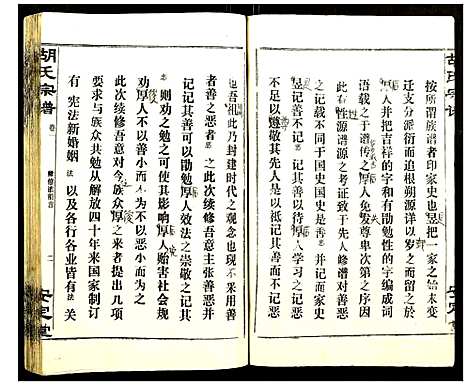 按所謂族譜者即家史也是把一家之始末变
迁支分派衍而追根朔源详以岁之而留于后
人并把前人对族人有勛勉性的字编成词
语载之于谱传人免发尊卑次第之序因
此有性源谱源之考证致于先人修譜对善
之记载不同于国史国史是善并记而家史
是记善而不记恶其目的待人学习之记恶
不足以遵敬其先人也是以祗记其善而不记恶
也吾祖此乃封建时代之观念也现不釆用善
者善之恶者之此次续修吾意主张善恶并
记记其善可以勛勉厚人效法之崇敬之记其
则劝勉之可使其影响厚人贻害社会规
劝厚人不以善小而不恶小而为之
此次续修吾意对今族众厚之来者提出几項
要求与族众共勉从解放四十年来国家制订
有宪法新婚姻法以及各行各业皆有法关
胡氏宗譜
卷一
二
安定堂
胡氏宗譜
安定堂